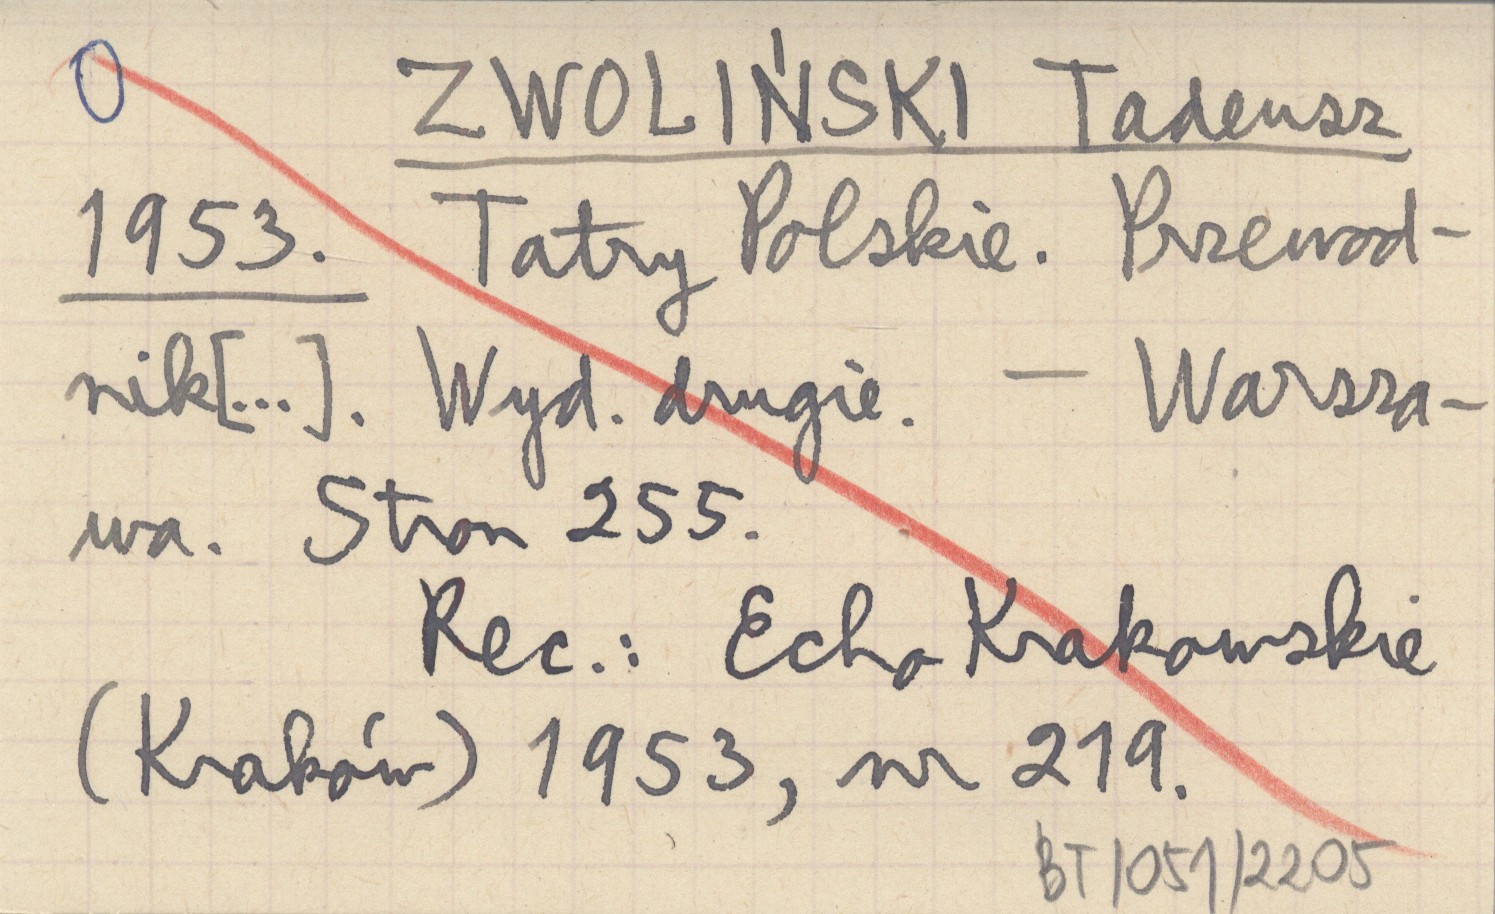 0
ZWOLIŃSKI Tadeusz
1953. Tatry Polskie. Przewod-
nik[...]. Wyd. drugie. — Warsza-
wa. Stron 255.
Rec.: Echo Krakowskie
(Kraków) 1953, nr 219.
BT/051/2205